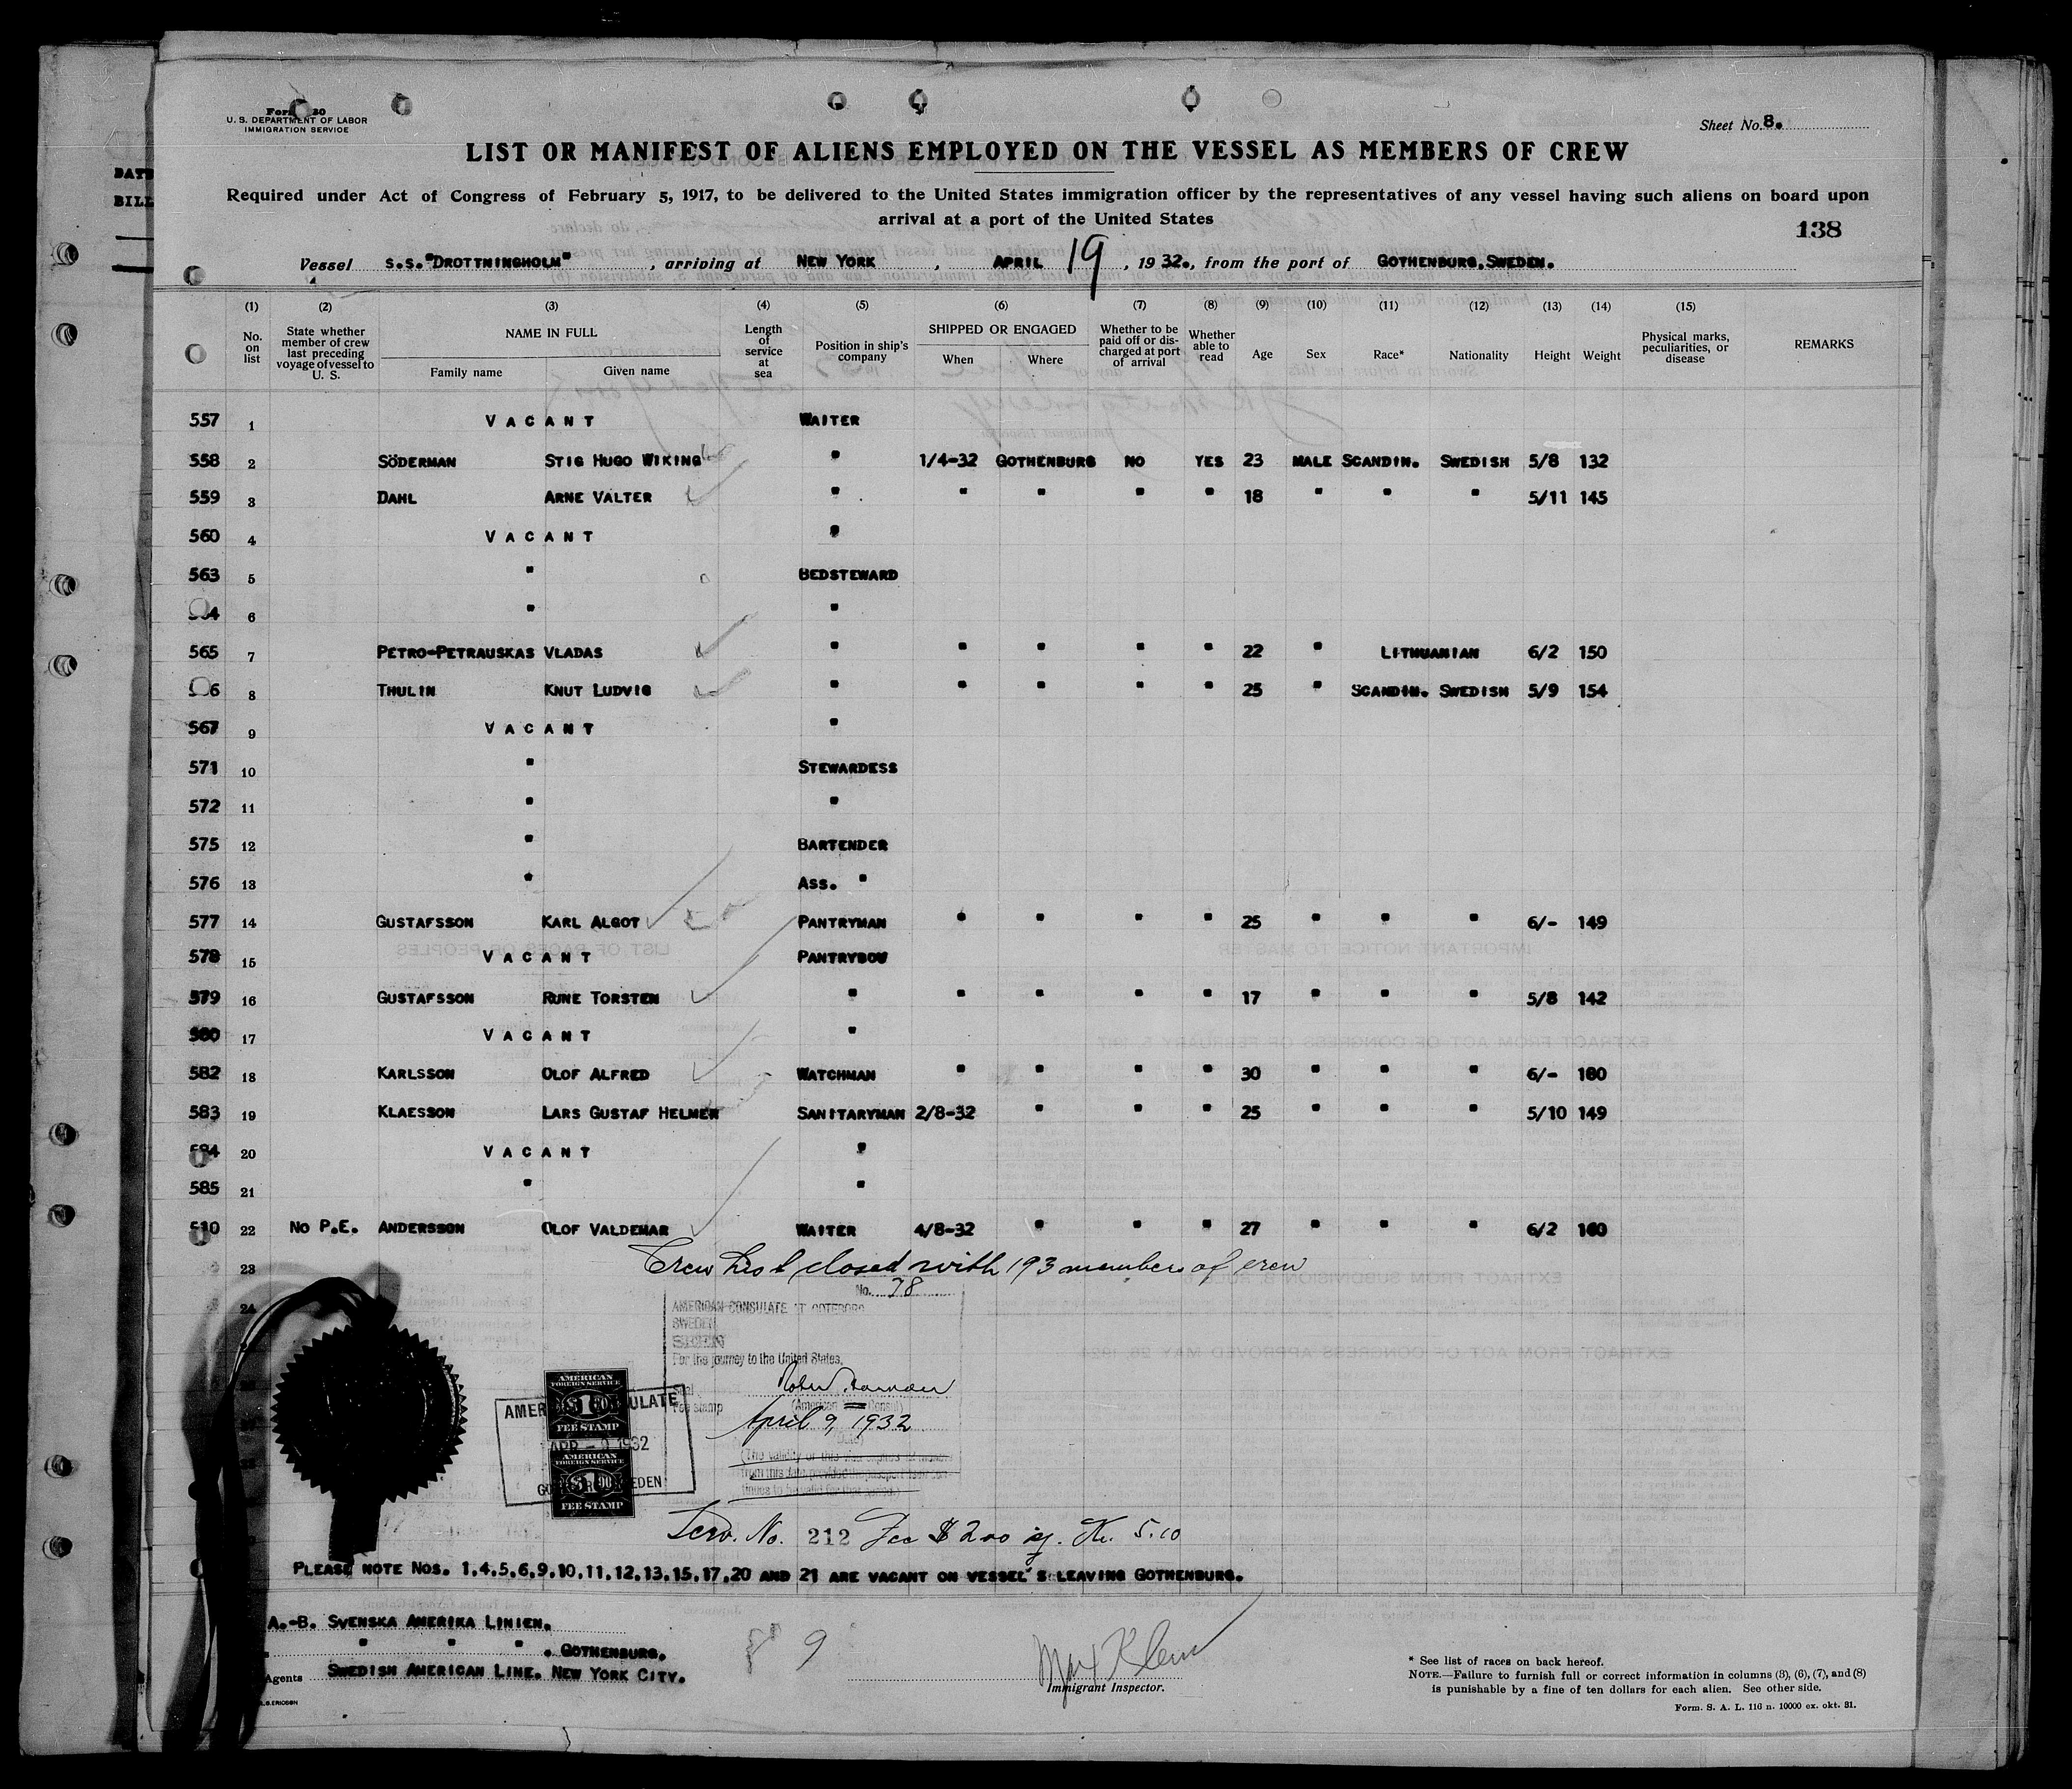 Form 680
U. S. DEPARTMENT OF LABOR
IMMIGRATION SERVICE
Sheet No. 8.
LIST OR MANIFEST OF ALIENS EMPLOYED ON THE VESSEL AS MEMBERS OF CREW
Required under Act of Congress of February 5, 1917, to be delivered to the United States immigration officer by the representatives of any vessel having such aliens on board upon
arrival at a port of the United States
138
Vessel S.S."DROTTNINGHOLM", arriving at NEW YORK, APRIL 19, 1932., from the port of GOTHENBURG, SWEDEN.
(1) (2) (3) (4) (5) (6) (7) (8) (9) (10) (11) (12) (13) (14) (15)
No. on list State whether member of crew last preceding voyage of vessel to U. S. NAME IN FULL Family name Given name Length of service at sea Position in ship's company SHIPPED OR ENGAGED When Where Whether to be paid off or discharged at port of arrival Whether able to read Age Sex Race* Nationality Height Weight Physical marks, peculiarities, or disease REMARKS
557 1 VACANT WAITER
558 2 SÖDERMAN STIG HUGO WIKING " 1/4-32 GOTHENBURG NO YES 23 MALE SCANDIN. SWEDISH 5/8 132
559 3 DAHL ARNE VALTER " " " " " 18 " " " 5/11 145
560 4 VACANT "
563 5 " BEDSTEWARD
4 6 " "
565 7 PETRO-PETRAUSKAS VLADAS " " " " " 22 " LITHUANIAN 6/2 150
6 8 THULIN KNUT LUDVIG " " " " " 25 " SCANDIN. SWEDISH 5/9 154
567 9 VACANT "
571 10 " STEWARDESS
572 11 " "
575 12 " BARTENDER
576 13 " ASS. "
577 14 GUSTAFSSON KARL ALGOT PANTRYMAN " " " " 25 " " " 6/- 149
578 15 VACANT PANTRYBOY
579 16 GUSTAFSSON RUNE TORSTEN " " " " " 17 " " " 5/8 142
580 17 VACANT "
582 18 KARLSSON OLOF ALFRED WATCHMAN " " " " 30 " " " 6/- 180
583 19 KLAESSON LARS GUSTAF HELMER SANITARYMAN 2/8-32 " " " 25 " " " 5/10 149
584 20 VACANT "
585 21 " "
510 22 NO P.E. ANDERSSON OLOF VALDEMAR WAITER 4/8-32 " " " 27 " " " 6/2 160
23 Crew list closed with 193 members of crew
No. 78
24 AMERICAN CONSULATE AT GOTEBORG
SWEDEN
For the journey to the United States,
(American Consul)
Fee stamp
April 9, 1932
AMERICAN FOREIGN SERVICE
$1.00
FEE STAMP
AMERICAN CONSULATE
APR - 9 1932
AMERICAN FOREIGN SERVICE
$1.00
FEE STAMP
Serv. No. 212 Fee $2.00 Kr. 5.10
PLEASE NOTE NOS. 1,4,5,6,9,10,11,12,13,15,17,20 AND 21 ARE VACANT ON VESSEL'S LEAVING GOTHENBURG.
A.-B. SVENSKA AMERIKA LINIEN.
" " " . GOTHENBURG.
Agents SWEDISH AMERICAN LINE. NEW YORK CITY.
9
Max Klein
Immigrant Inspector.
* See list of races on back hereof.
NOTE.—Failure to furnish full or correct information in columns (3), (6), (7), and (8)
is punishable by a fine of ten dollars for each alien. See other side.
Form. S. A. L. 116 n. 10000 ex. okt. 31.